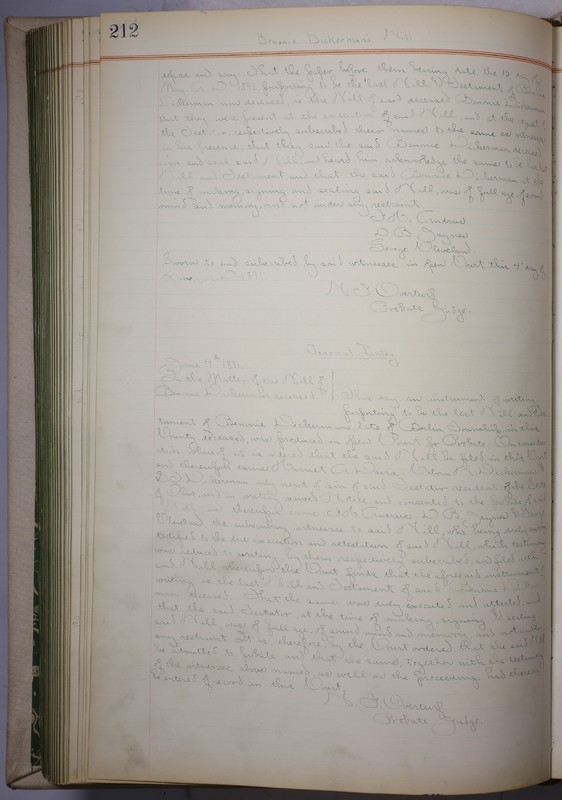 212
Bennie Dickerman's Will
depose and say, That the paper before them bearing date the 12 day of
May A.D. 1891 purporting to be the last Will & Testament of Bennie
Dickerman now deceased is the Will of said deceased Bennie Dickerman
that they were present at the execution of said Will, and at the request of
the Testator, respectively subscribed their names to the same as witnesses
in his presence, that they saw the said Bennie Dickerman deceased
sign and seal said Will and heard him acknowledge the same to be his last
Will and Testament, and that the said Bennie Dickerman at the
time of making, signing and sealing said Will, was of full age, of sound
mind and memory, and not under any restraint
F. W. Andrus
D. B. Jaynes
George Cleveland
Sworn to and subscribed by said witnesses in open Court this 4" day of
June A.D. 1891
M. F. Overturf
Probate Judge.
Journal Entry
June 4th 1891
In the Matter of the Will of
Bennie Dickerman deceased. This day an instrument of writing,
purporting to be the last Will and Tes-
tament of Bennie Dickerman, late of Berlin Township, in this
County, deceased, was produced in open Court for Probate. On consider-
ation thereof, it is ordered that the said Will be filed in this Court
and thereupon came A. Dickerman,
Dickerman only next of kin of said Testator resident of the State
of Ohio, and in writing waived Notice and consented to the probate of said
Will, and thereupon came F. W. Andrus, D. B. Jaynes & George
Cleveland the subscribing witnesses to said Will, who being duly sworn
testified to the due execution and attestation of said Will, which testimony
was reduced to writing, by them respectively subscribed, and filed with
said Will, whereupon the Court finds that the aforesaid instrument of
writing is the last Will and Testament of said Bennie Dicker-
man deceased. That the same was duly executed and attested, and
that the said Testator, at the time of making, signing & sealing
said Will, was of full age, of sound mind and memory and not under
any restraint. It is, therefore, by the Court ordered that the said Will
be admitted to probate, and that the same, together with the testimony
of the witnesses above named, as well as the proceedings had thereon
be entered of record in this Court
M. F. Overturf
Probate Judge.